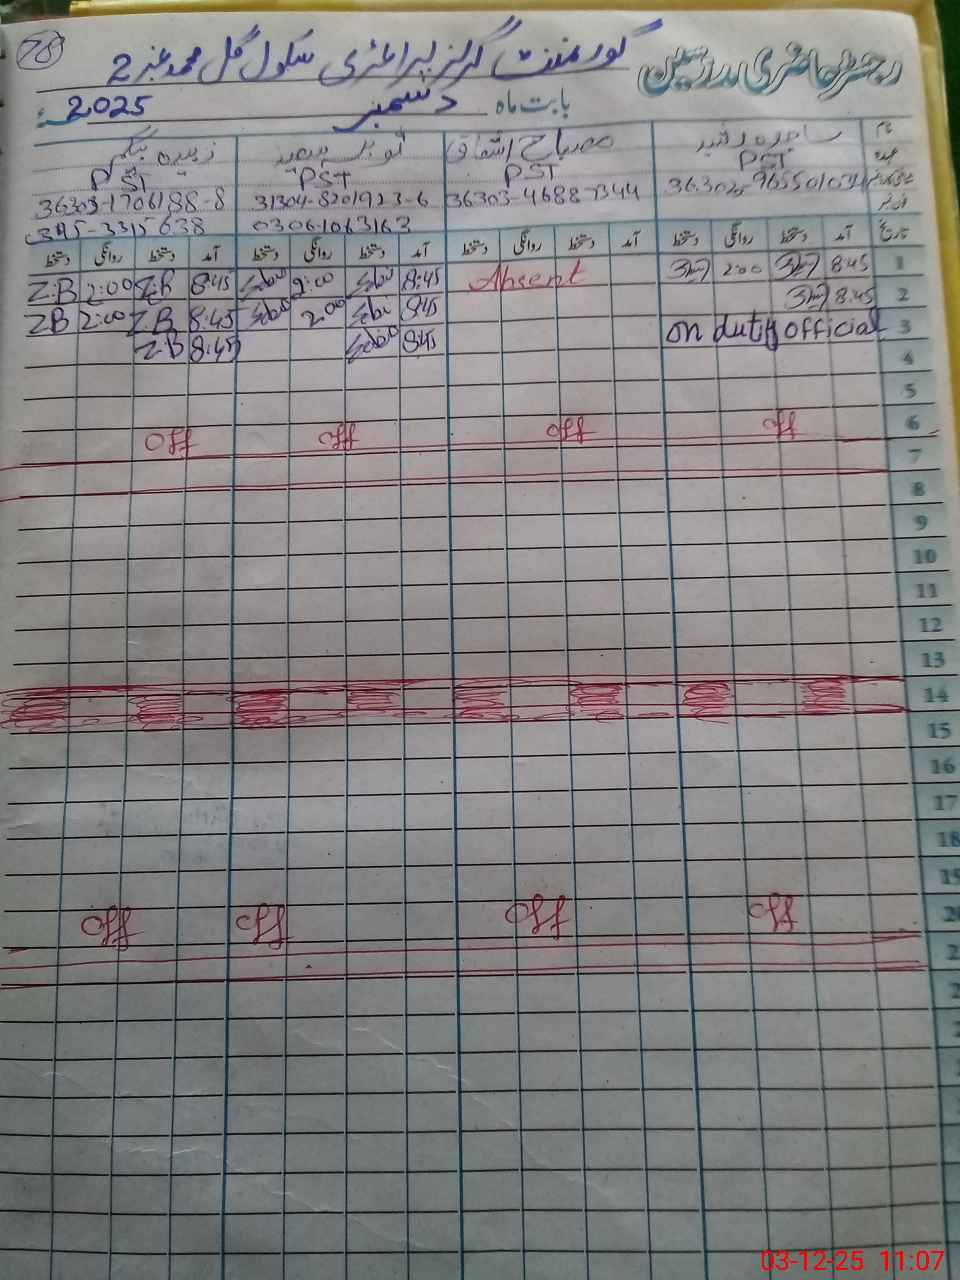 78
رجسٹر حاضری مدرسین
گورنمنٹ گرلز پرائمری سکول گل محمد نمبر 2
بابت ماہ دسمبر 2025
نام ساجدہ رشید مصباح اشفاق ثوبیہ زبیدہ بیگم
عہدہ PST PST PST PST
36303-4688-7344 31304-8201923-6 36303-1706188-8
03061063163 0345-3315638
تاریخ آمد دستخط روانگی دستخط آمد دستخط روانگی دستخط آمد دستخط روانگی دستخط آمد دستخط روانگی دستخط
1 8:45 2:00 Absent 8:45 2:00 8:45 Z.B 2:00 Z.B
2 8:45 8:45 2:00 8:45 Z.B 2:00 Z.B
3 on duty official 8:45 8:45 Z.B
4
5
6 off off off off
7
8
9
10
11
12
13
14
15
16
17
18
19
20 off off off off
03-12-25 11:07